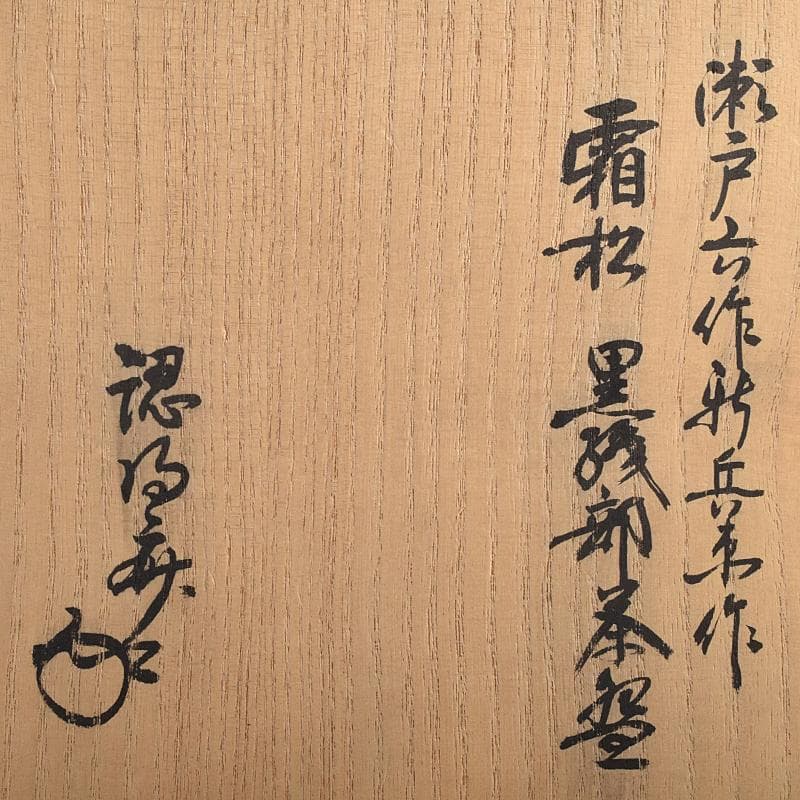 瀬戸六作新兵衛作
霜松 黒織部茶盌
認得斎